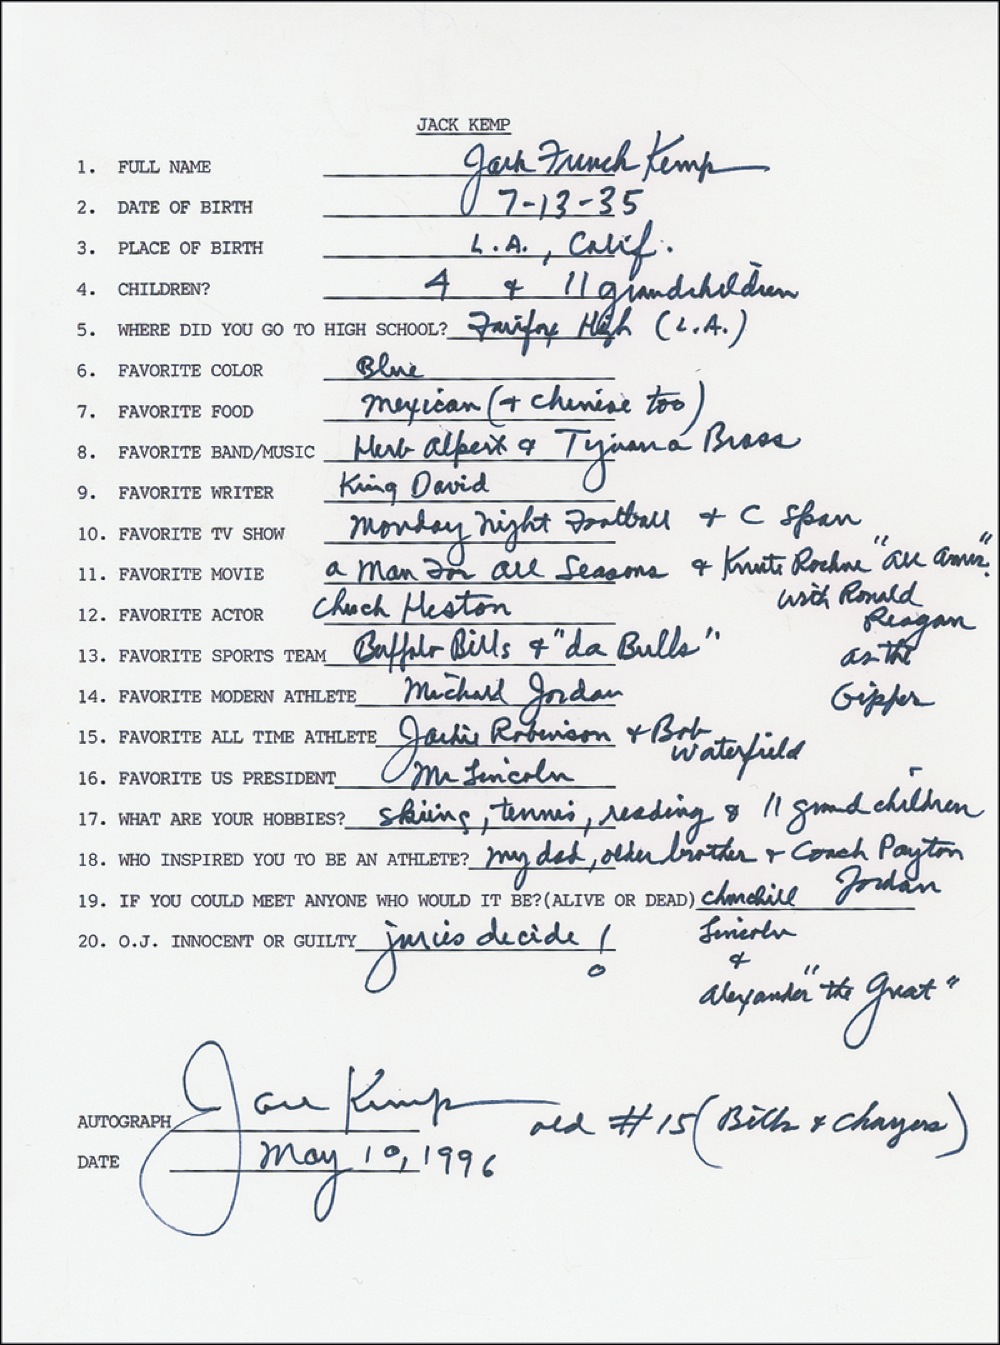 JACK KEMP
1. FULL NAME Jack French Kemp
2. DATE OF BIRTH 7-13-35
3. PLACE OF BIRTH L.A., Calif.
4. CHILDREN? 4 & 11 grandchildren
5. WHERE DID YOU GO TO HIGH SCHOOL? Fairfax High (L.A.)
6. FAVORITE COLOR Blue
7. FAVORITE FOOD Mexican (+ chinise too)
8. FAVORITE BAND/MUSIC Herb Alpert & Tijuana Brass
9. FAVORITE WRITER King David
10. FAVORITE TV SHOW Monday Night Football + C Span
11. FAVORITE MOVIE a Man For All Seasons & Knute Rockne "All Amer."
with Ronald
12. FAVORITE ACTOR Chuck Heston
Reagan
13. FAVORITE SPORTS TEAM Buffalo Bills & "da Bulls"
as the
14. FAVORITE MODERN ATHLETE Michael Jordan
Gipper
15. FAVORITE ALL TIME ATHLETE Jackie Robinson + Bob
Waterfield
16. FAVORITE US PRESIDENT Mr Lincoln
17. WHAT ARE YOUR HOBBIES? skiing, tennis, reading & 11 grandchildren
18. WHO INSPIRED YOU TO BE AN ATHLETE? my dad, older brother + Coach Payton
Jordan
19. IF YOU COULD MEET ANYONE WHO WOULD IT BE?(ALIVE OR DEAD) Churchill
Lincoln
20. O.J. INNOCENT OR GUILTY juries decide!
&
Alexander "the Great"
AUTOGRAPH Jack Kemp old #15 (Bills & Chargers)
DATE May 10, 1996